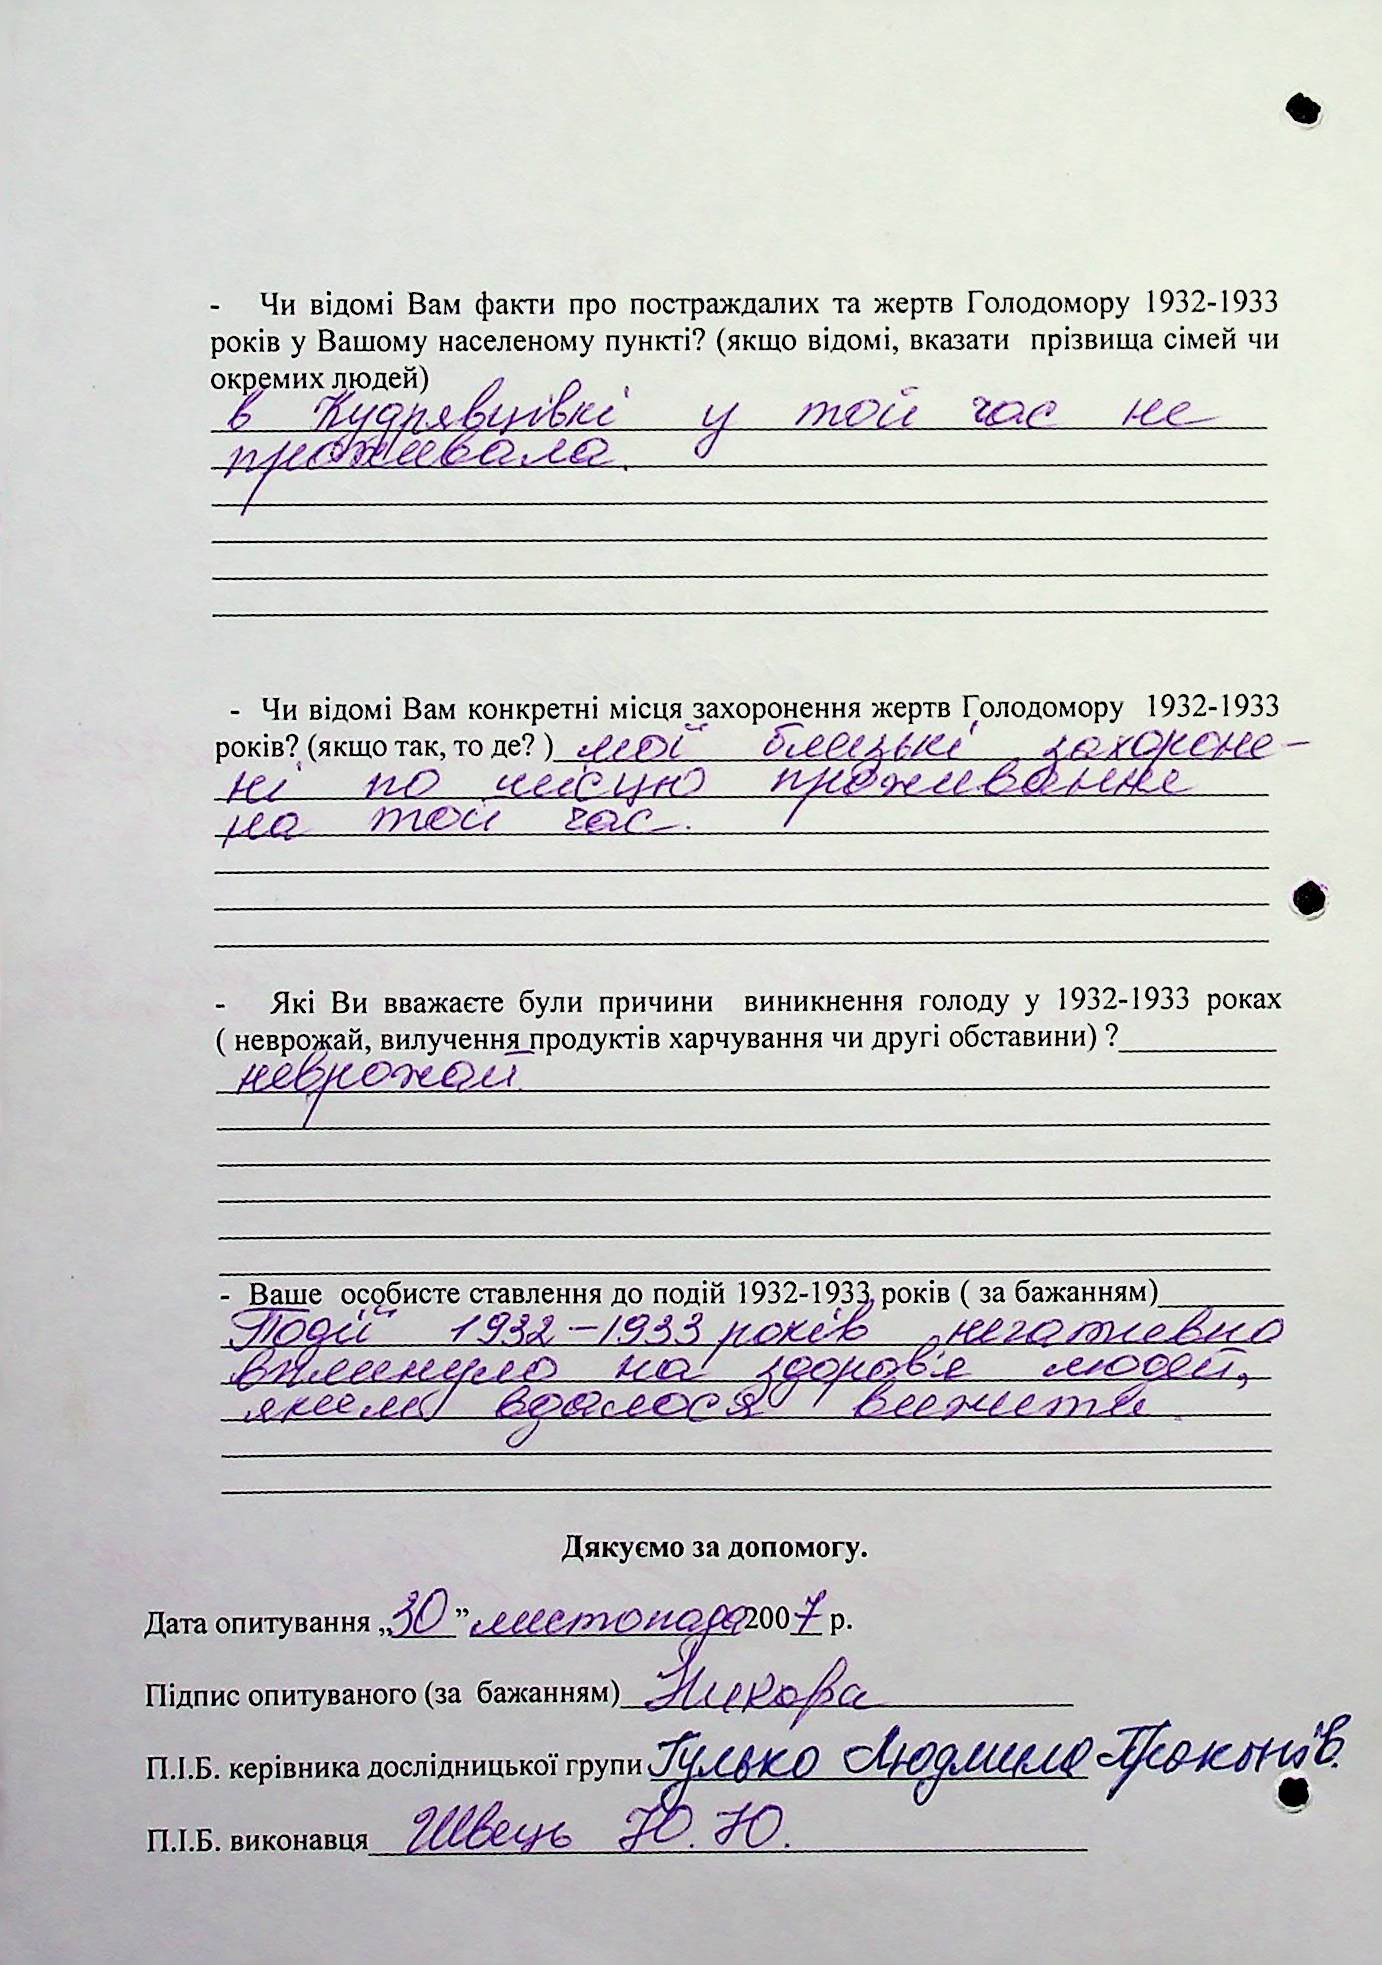 - Чи відомі Вам факти про постраждалих та жертв Голодомору 1932-1933
років у Вашому населеному пункті? (якщо відомі, вказати прізвища сімей чи
окремих людей)
в Кудрявцівкі у той час не
проживала.
- Чи відомі Вам конкретні місця захоронення жертв Голодомору 1932-1933
років? (якщо так, то де? ) мої близькі захороне-
ні по місцю проживання
на той час.
- Які Ви вважаєте були причини виникнення голоду у 1932-1933 роках
( неврожай, вилучення продуктів харчування чи другі обставини) ?
неврожай.
- Ваше особисте ставлення до подій 1932-1933 років ( за бажанням)
Події 1932-1933 років негативно
вплинуло на здоров'я людей,
яким вдалося вижити.
Дякуємо за допомогу.
Дата опитування „30” листопада 2007 р.
Підпис опитуваного (за бажанням)
П.І.Б. керівника дослідницької групи Гулько Людмила Проконів.
П.І.Б. виконавця Швець Ю.Ю.